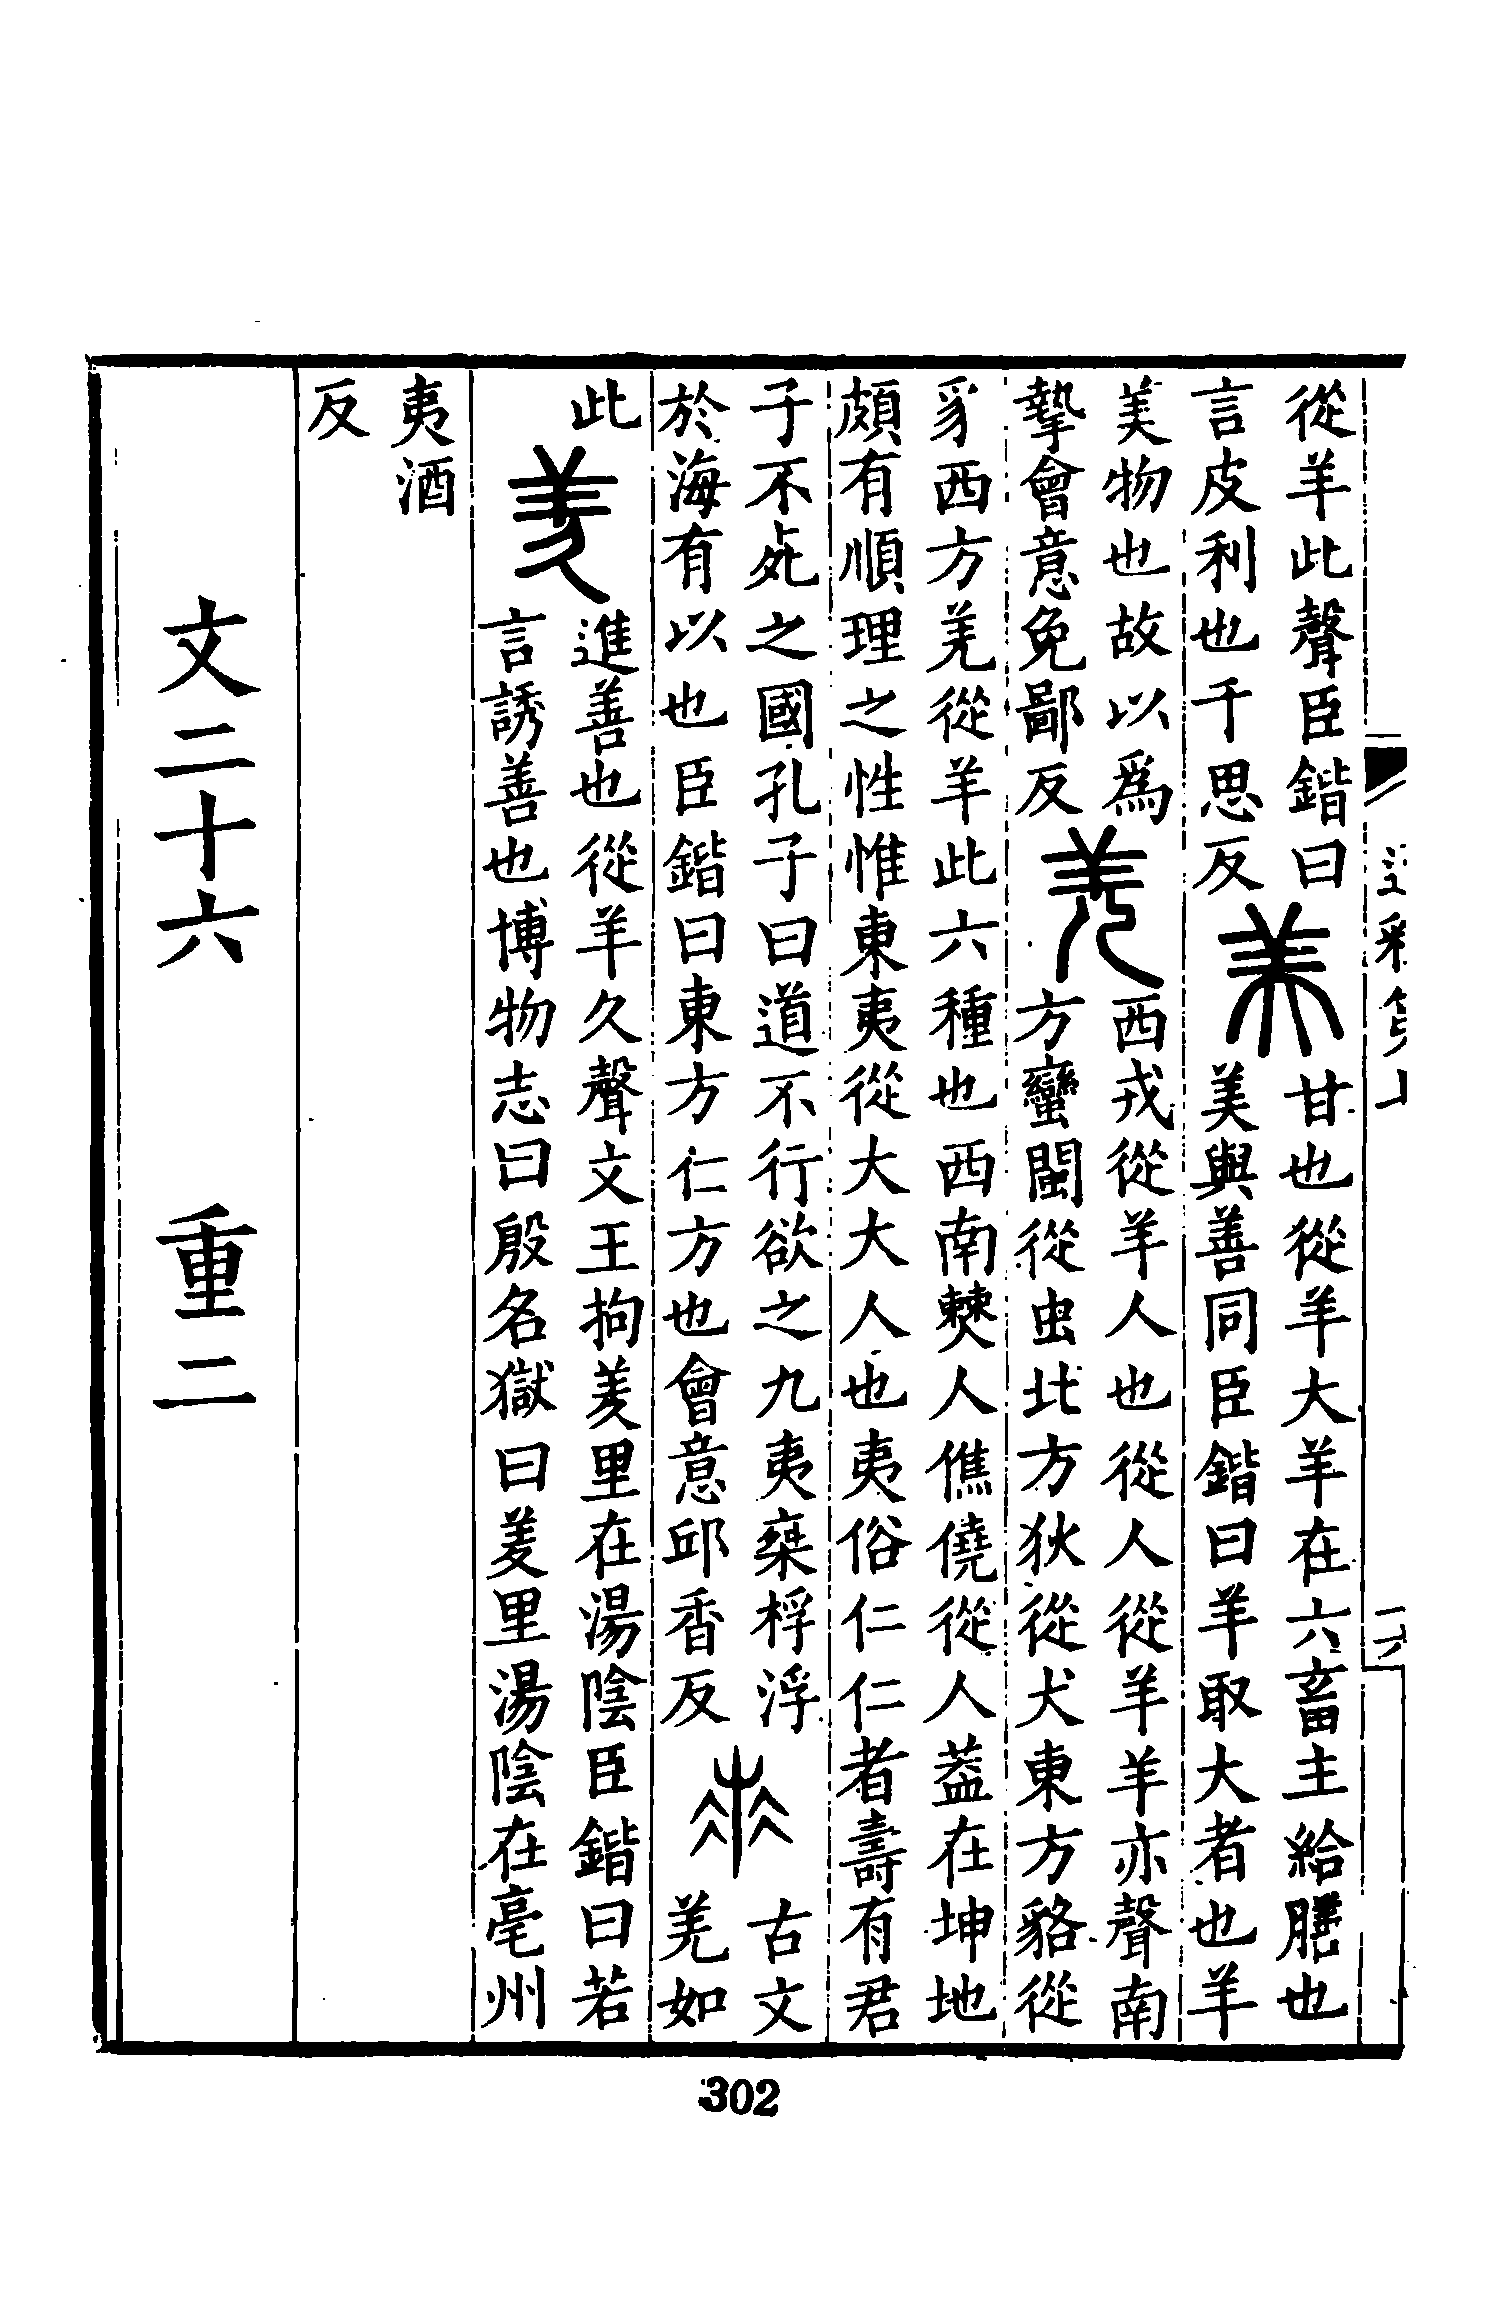 從羊此聲臣鍇曰
言皮利也千思反
美
甘也從羊大羊在六畜主給膳也
美與善同臣鍇曰羊取大者也羊
美物也故以爲
摯會意免鄙反
羌
西戎從羊人也從人從羊羊亦聲南
方蠻閩從虫北方狄從犬東方貉從
豸西方羌從羊此六種也西南僰人僬僥從人葢在坤地
頗有順理之性惟東夷從大大人也夷俗仁仁者壽有君
子不死之國孔子曰道不行欲之九夷椉桴浮
於海有以也臣鍇曰東方仁方也會意邱香反
古文
羌如
此
羑
進善也從羊久聲文王拘羑里在湯陰臣鍇曰若
言誘善也博物志曰殷名獄曰羑里湯陰在亳州
夷酒
反
文二十六 重二
302